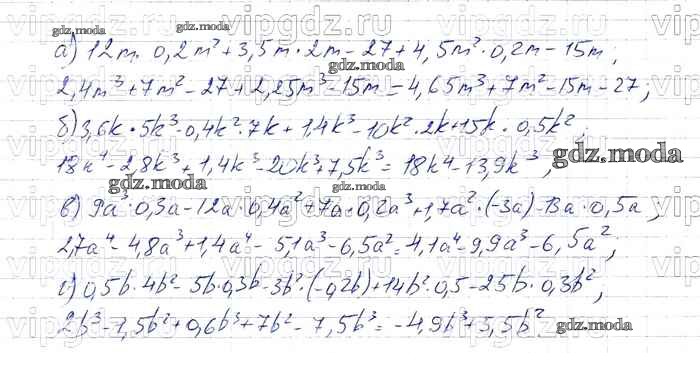 vipgdz.ru vipgdz.ru vipgdz.ru
gdz.moda
gdz.moda
а) 12m · 0,2m² + 3,5m · 2m - 27 + 4,5m² · 0,2m - 15m,
gdz.moda
2,4m³ + 7m² - 27 + 2,25m³ - 15m = 4,65m³ + 7m² - 15m - 27;
б) 3,6k · 5k³ - 0,4k² · 7k + 1,4k³ - 10k² · 2k + 15k · 0,5k²,
18k⁴ - 2,8k³ + 1,4k³ - 20k³ + 7,5k³ = 18k⁴ - 13,9k³,
gdz.moda
gdz.moda
gdz.moda
в) 9a³ · 0,3a - 12a · 0,4a² + 7a · 0,2a³ + 1,7a² · (-3a) - 13a · 0,5a,
2,7a⁴ - 4,8a³ + 1,4a⁴ - 5,1a³ - 6,5a² = 4,1a⁴ - 9,9a³ - 6,5a²;
г) 0,5b · 4b² - 5b · 0,3b - 3b² · (-0,2b) + 14b² · 0,5 - 25b · 0,3b²,
gdz.moda
2b³ - 1,5b² + 0,6b³ + 7b² - 7,5b³ = -4,9b³ + 5,5b²
gdz.moda